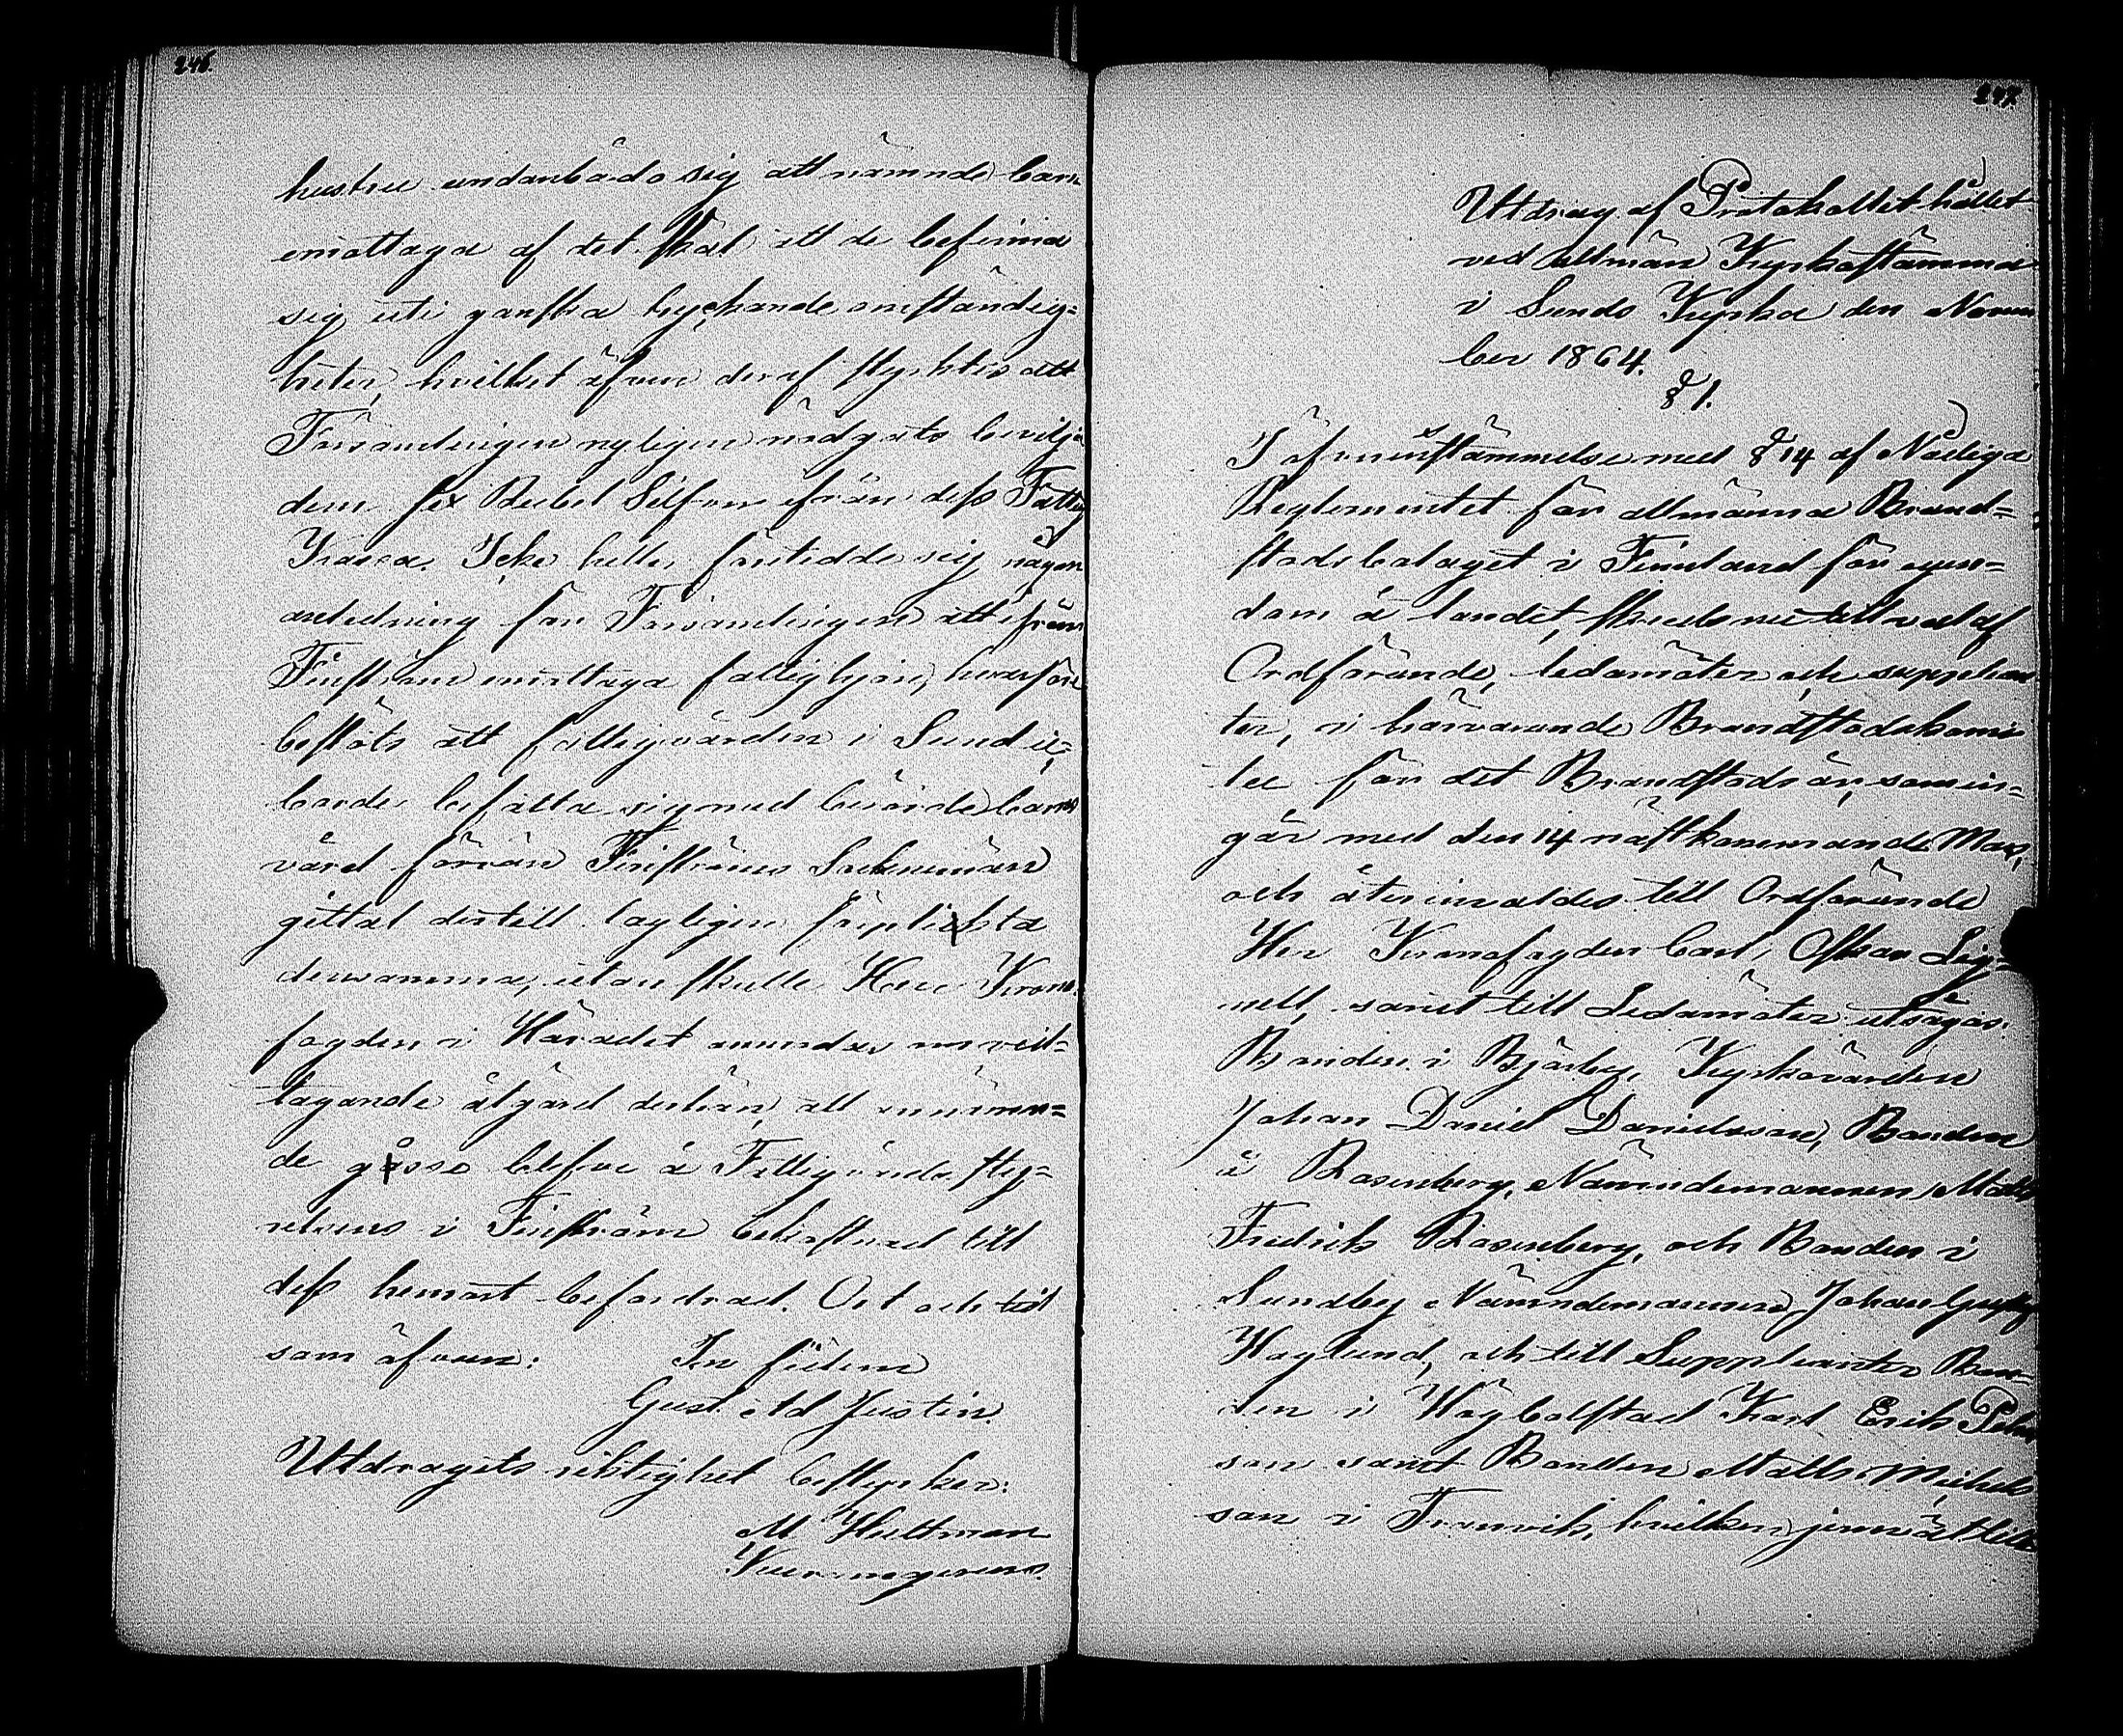 246.
hustru undanbådo sig att nämnde barn
emottaga af det skäl att de befinna
sig uti ganska tryckande omständig-
heter, hvilket äfven deraf styrktes att
Församlingen nyligen nödgats bevilja
dem sex Rubel Silfver ifrån dess Fattig
Kassa. Icke heller företedde sig någon
anledning för Församlingen att ifrån
Finström emottaga fattighjon, hvarföre
beslöts att fattigvården i Sund
borde befatta sig med berörde barns
vård förrän Finströms Sockenmän
gittat dertill lagligen förpligta
densamma, utan skulle Herr Krono-
fogden i Häradet anmodas om vid-
tagande åtgärd derhän, att omnämn-
de gosse blefve å Fattigvårdssty-
relsens i Finström bekostnad till
dess hemort befordrad. Ort och tid
som äfvan:
In fidem
Gust. Ad Justin.
Utdragets riktighet bestyrker:
M Hultman
247.
Utdrag af Protokollet hållet
vid allmän Kyrkostämma
i Sunds Kyrka den Novem
ber 1864.
§ 1.
I öfverensstämmelse med § 14 af Nådiga
Reglementet för allmänna Brand-
stodsbolaget i Finland för egen-
dom å landet, skreds nu till val af
Ordförande, ledamöter och supplean
ter, i härvarande Brandstodskomi
tee för det Brandstodsår, som in-
går med den 14 nästkommande Mars,
och återinvaldes till Ordförande
Herr Kronofogden Carl Oskar Lig-
nell, samt till Ledamöter utsågos:
Bonden i Bjärby, Kyrkovärden
Johan Daniel Danielsson, Bonden
å Rosenberg, Nämndemannen Matts
Fredrik Rosenberg, och Bonden i
Sundby Nämndemannen Johan Gustaf
Haglund, och till Suppleanter Bon-
den i Högbolstad Karl Erik Peters
son samt Bonden Matts Michels
son i Tranvik, hvilken jemväl till